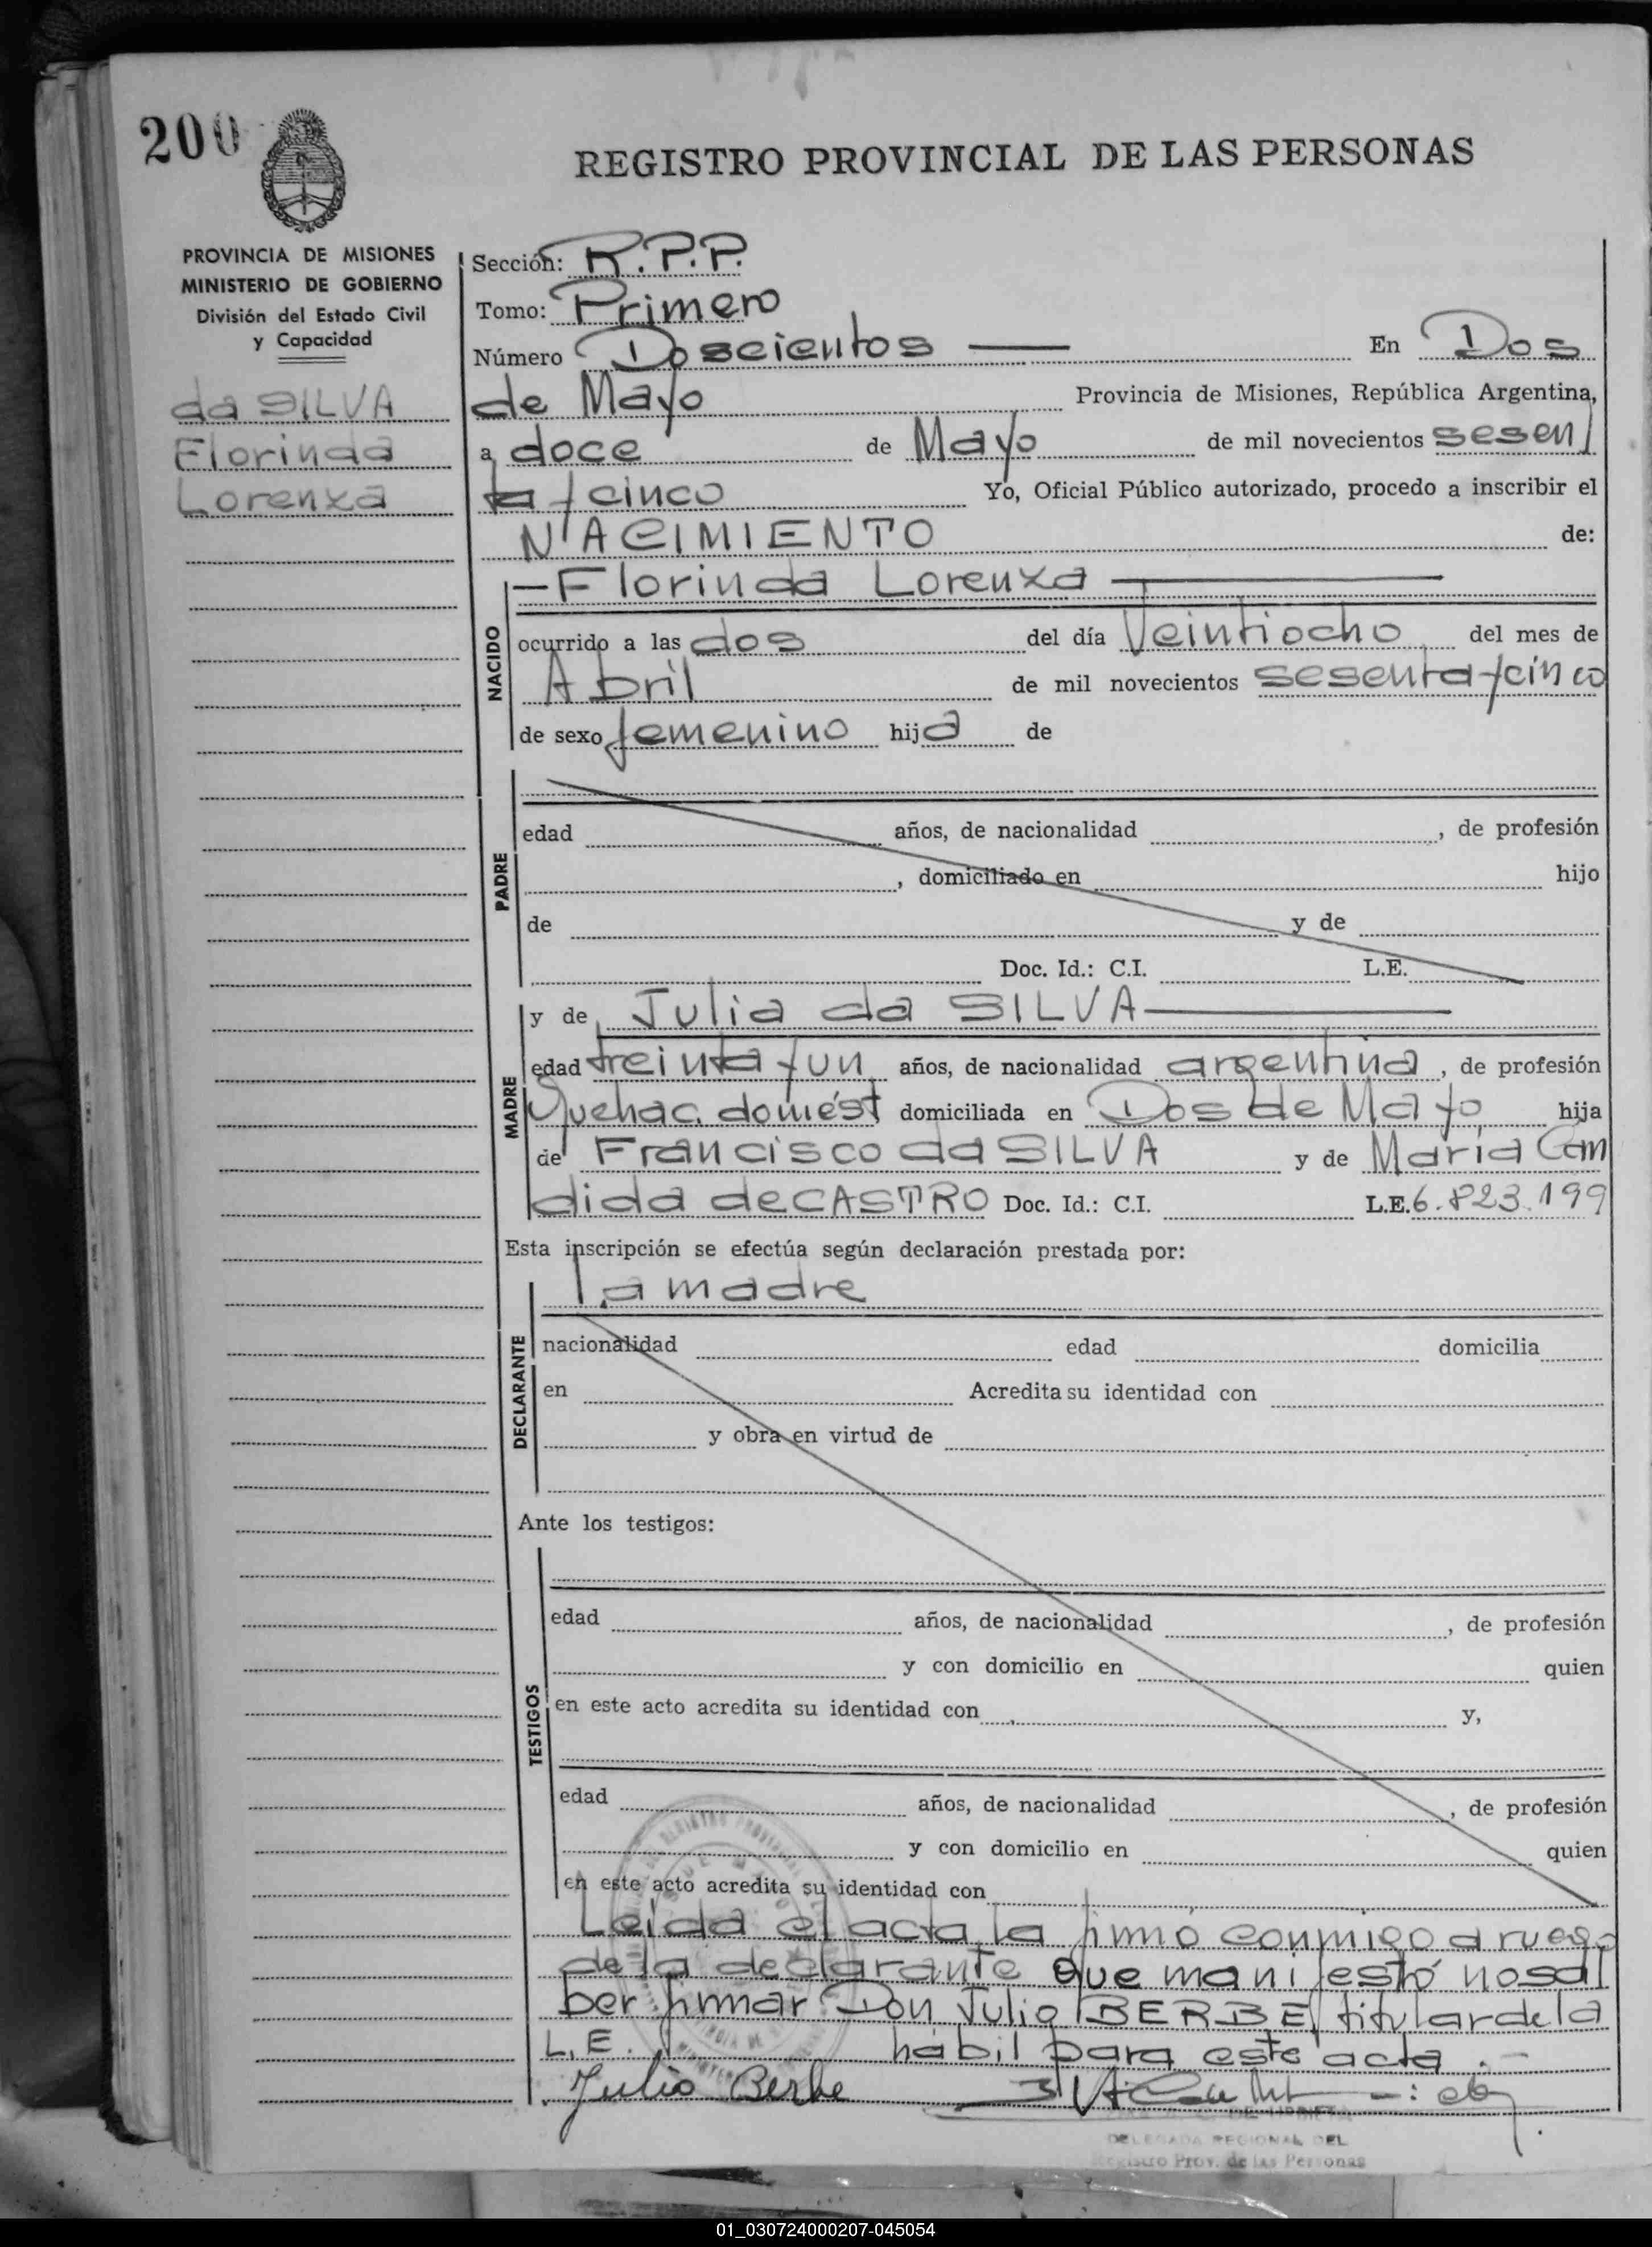 200
REGISTRO PROVINCIAL DE LAS PERSONAS
PROVINCIA DE MISIONES
MINISTERIO DE GOBIERNO
División del Estado Civil
y Capacidad
da SILVA
Florinda
Lorenza
Sección: R.P.P.
Tomo: Primero
Número Doscientos — En Dos
de Mayo Provincia de Misiones, República Argentina,
a doce de Mayo de mil novecientos sesen
ta y cinco Yo, Oficial Público autorizado, procedo a inscribir el
NACIMIENTO de:
NACIDO
— Florinda Lorenza —
ocurrido a las dos del día Veintiocho del mes de
Abril de mil novecientos sesenta y cinco
de sexo femenino hija de
PADRE
edad años, de nacionalidad , de profesión
, domiciliado en hijo
de y de
Doc. Id.: C.I. L.E.
MADRE
y de Julia da SILVA —
edad treinta y un años, de nacionalidad argentina, de profesión
Quehac. domést domiciliada en Dos de Mayo hija
de Francisco da SILVA y de María Can
dida de CASTRO Doc. Id.: C.I. L.E. 6.823.199
Esta inscripción se efectúa según declaración prestada por:
DECLARANTE
la madre
nacionalidad edad domicilia
en Acredita su identidad con
y obra en virtud de
Ante los testigos:
TESTIGOS
edad años, de nacionalidad , de profesión
y con domicilio en quien
en este acto acredita su identidad con y,
edad años, de nacionalidad , de profesión
y con domicilio en quien
en este acto acredita su identidad con
Leída el acta, la firmó conmigo a ruego
de la declarante que manifestó no sa
ber firmar Don Julio BERBE, titular de la
L.E. hábil para este acta.—
Julio Berbe
DELEGADA REGIONAL DEL
Registro Prov. de las Personas
01_030724000207-045054